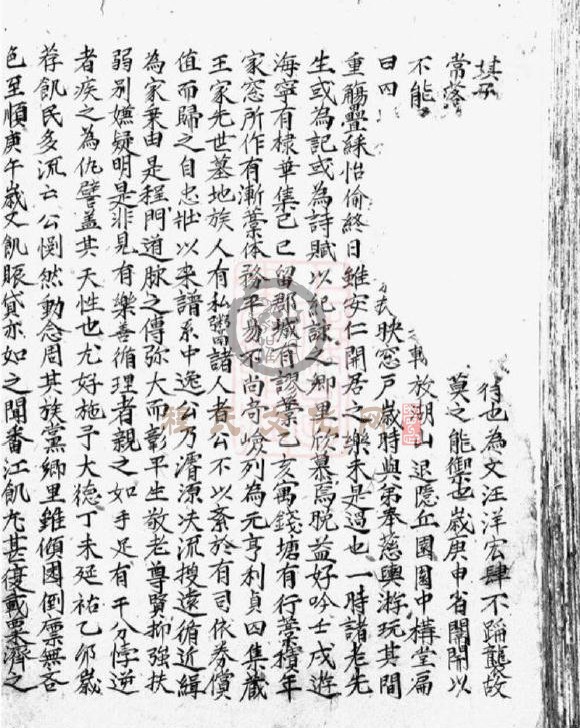 其不　　行也為文汪洋宏肆不蹈襲故
常客　　莫之能禦也歲庚申省闈開以
不能　　放胡山退隱丘園園中構堂扁
曰四　　映窓戶歲時與弟奉慈輿游玩其間
重觴疊綵怡愉終日雖安仁閒居之樂未是過也一時諸老先
生或為記或為詩賦以紀詠之鄉里欣慕焉脫益好吟壬戌遊
海寧有棣華集己巳留郡城有謏藁乙亥寓錢塘有行藁積年
家窓所作有漸藁体務平易不尚奇嶮列為元亨利貞四集藏
王家先世墓地族人有私鬻諸人者公不以紊於有司依券償
值而歸之自忠壯以来譜系中逸公乃濬源决流搜遠循近緝
為家乗由是程門道脉之傳弥大而彰平生敬老尊賢抑強扶
弱別嫌疑明是非見有樂善循理者親之如手足有干分悖逆
者疾之為仇讐盖其天性也尤好施予大德丁未延祐乙卯歲
荐飢民多流亡公惻然動念周其族黨鄉里雖傾囷倒廪無吝
色至順庚午歲又飢賑貸亦如之聞番江飢尤甚復載粟濟之